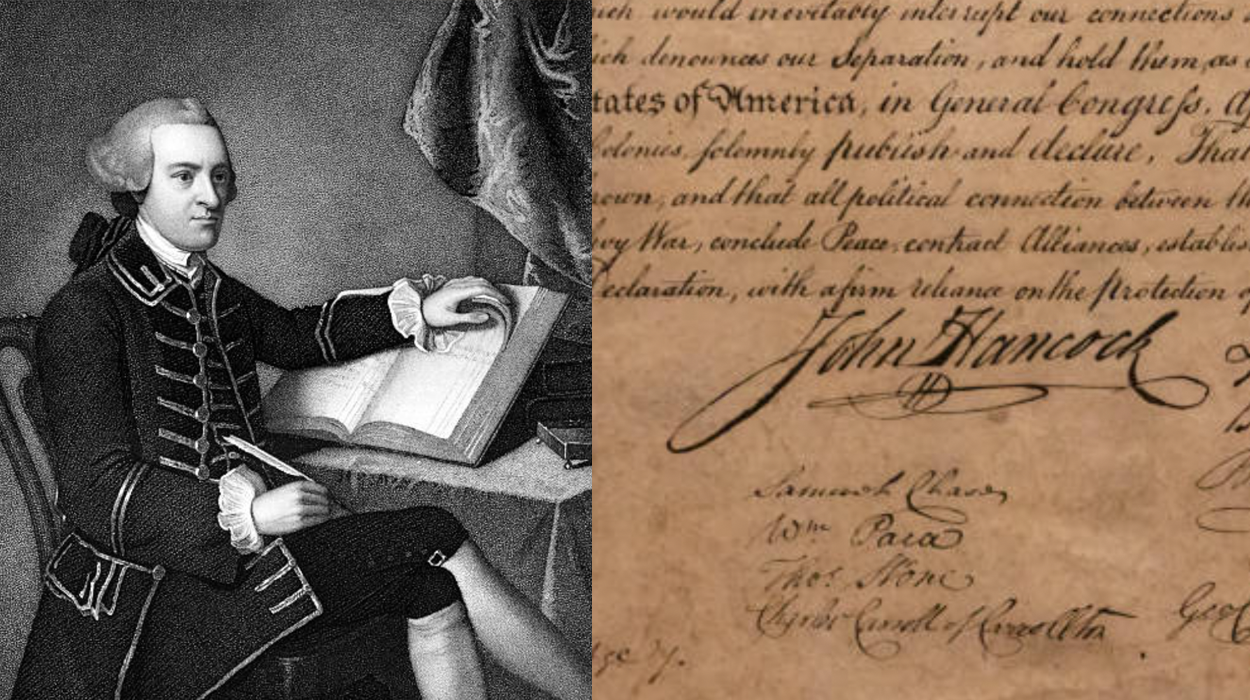 ich would inevitably interrupt our connections
ich denounces our Separation, and hold them, as
tates of America, in General Congress, A
olonies, solemnly publish and declare, That
rown, and that all political connection between th
vy War, conclude Peace, contract Alliances, establis
eclaration, with a firm reliance on the protection o
John Hancock
Samuel Chase
Wm Paca
Thos. Stone
Charles Carroll of Carrollton
Geo